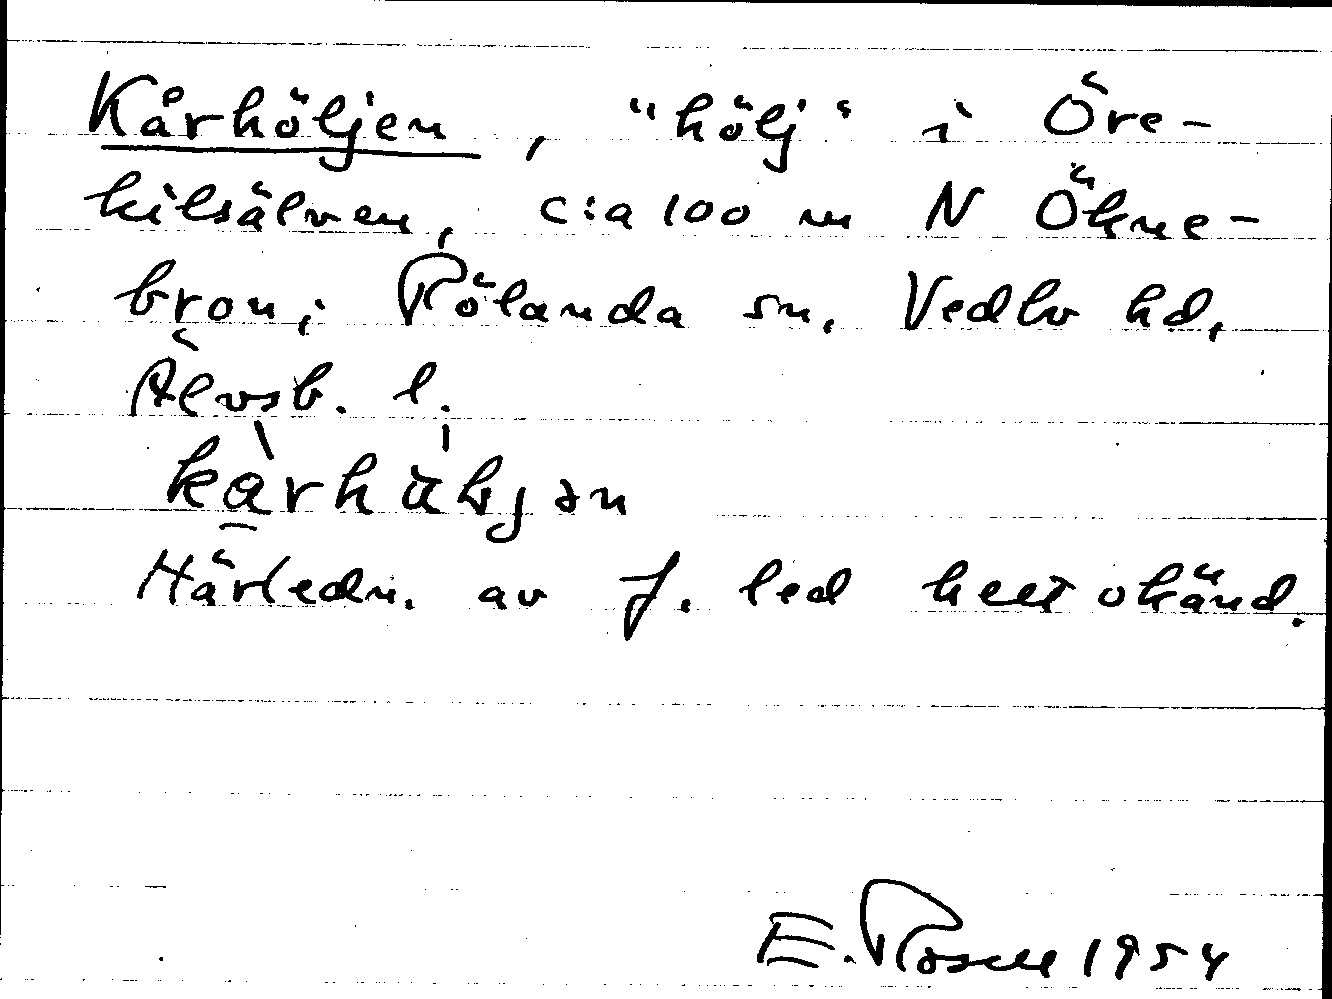 Kårhöljen, "hölj" i Öre-
kilsälven, c:a 100 m N Ökne-
bron; Rölanda sn, Vedbo hd,
Älvsb. l.
Härledn. av f. led helt okänd.
E. Rosell 1954